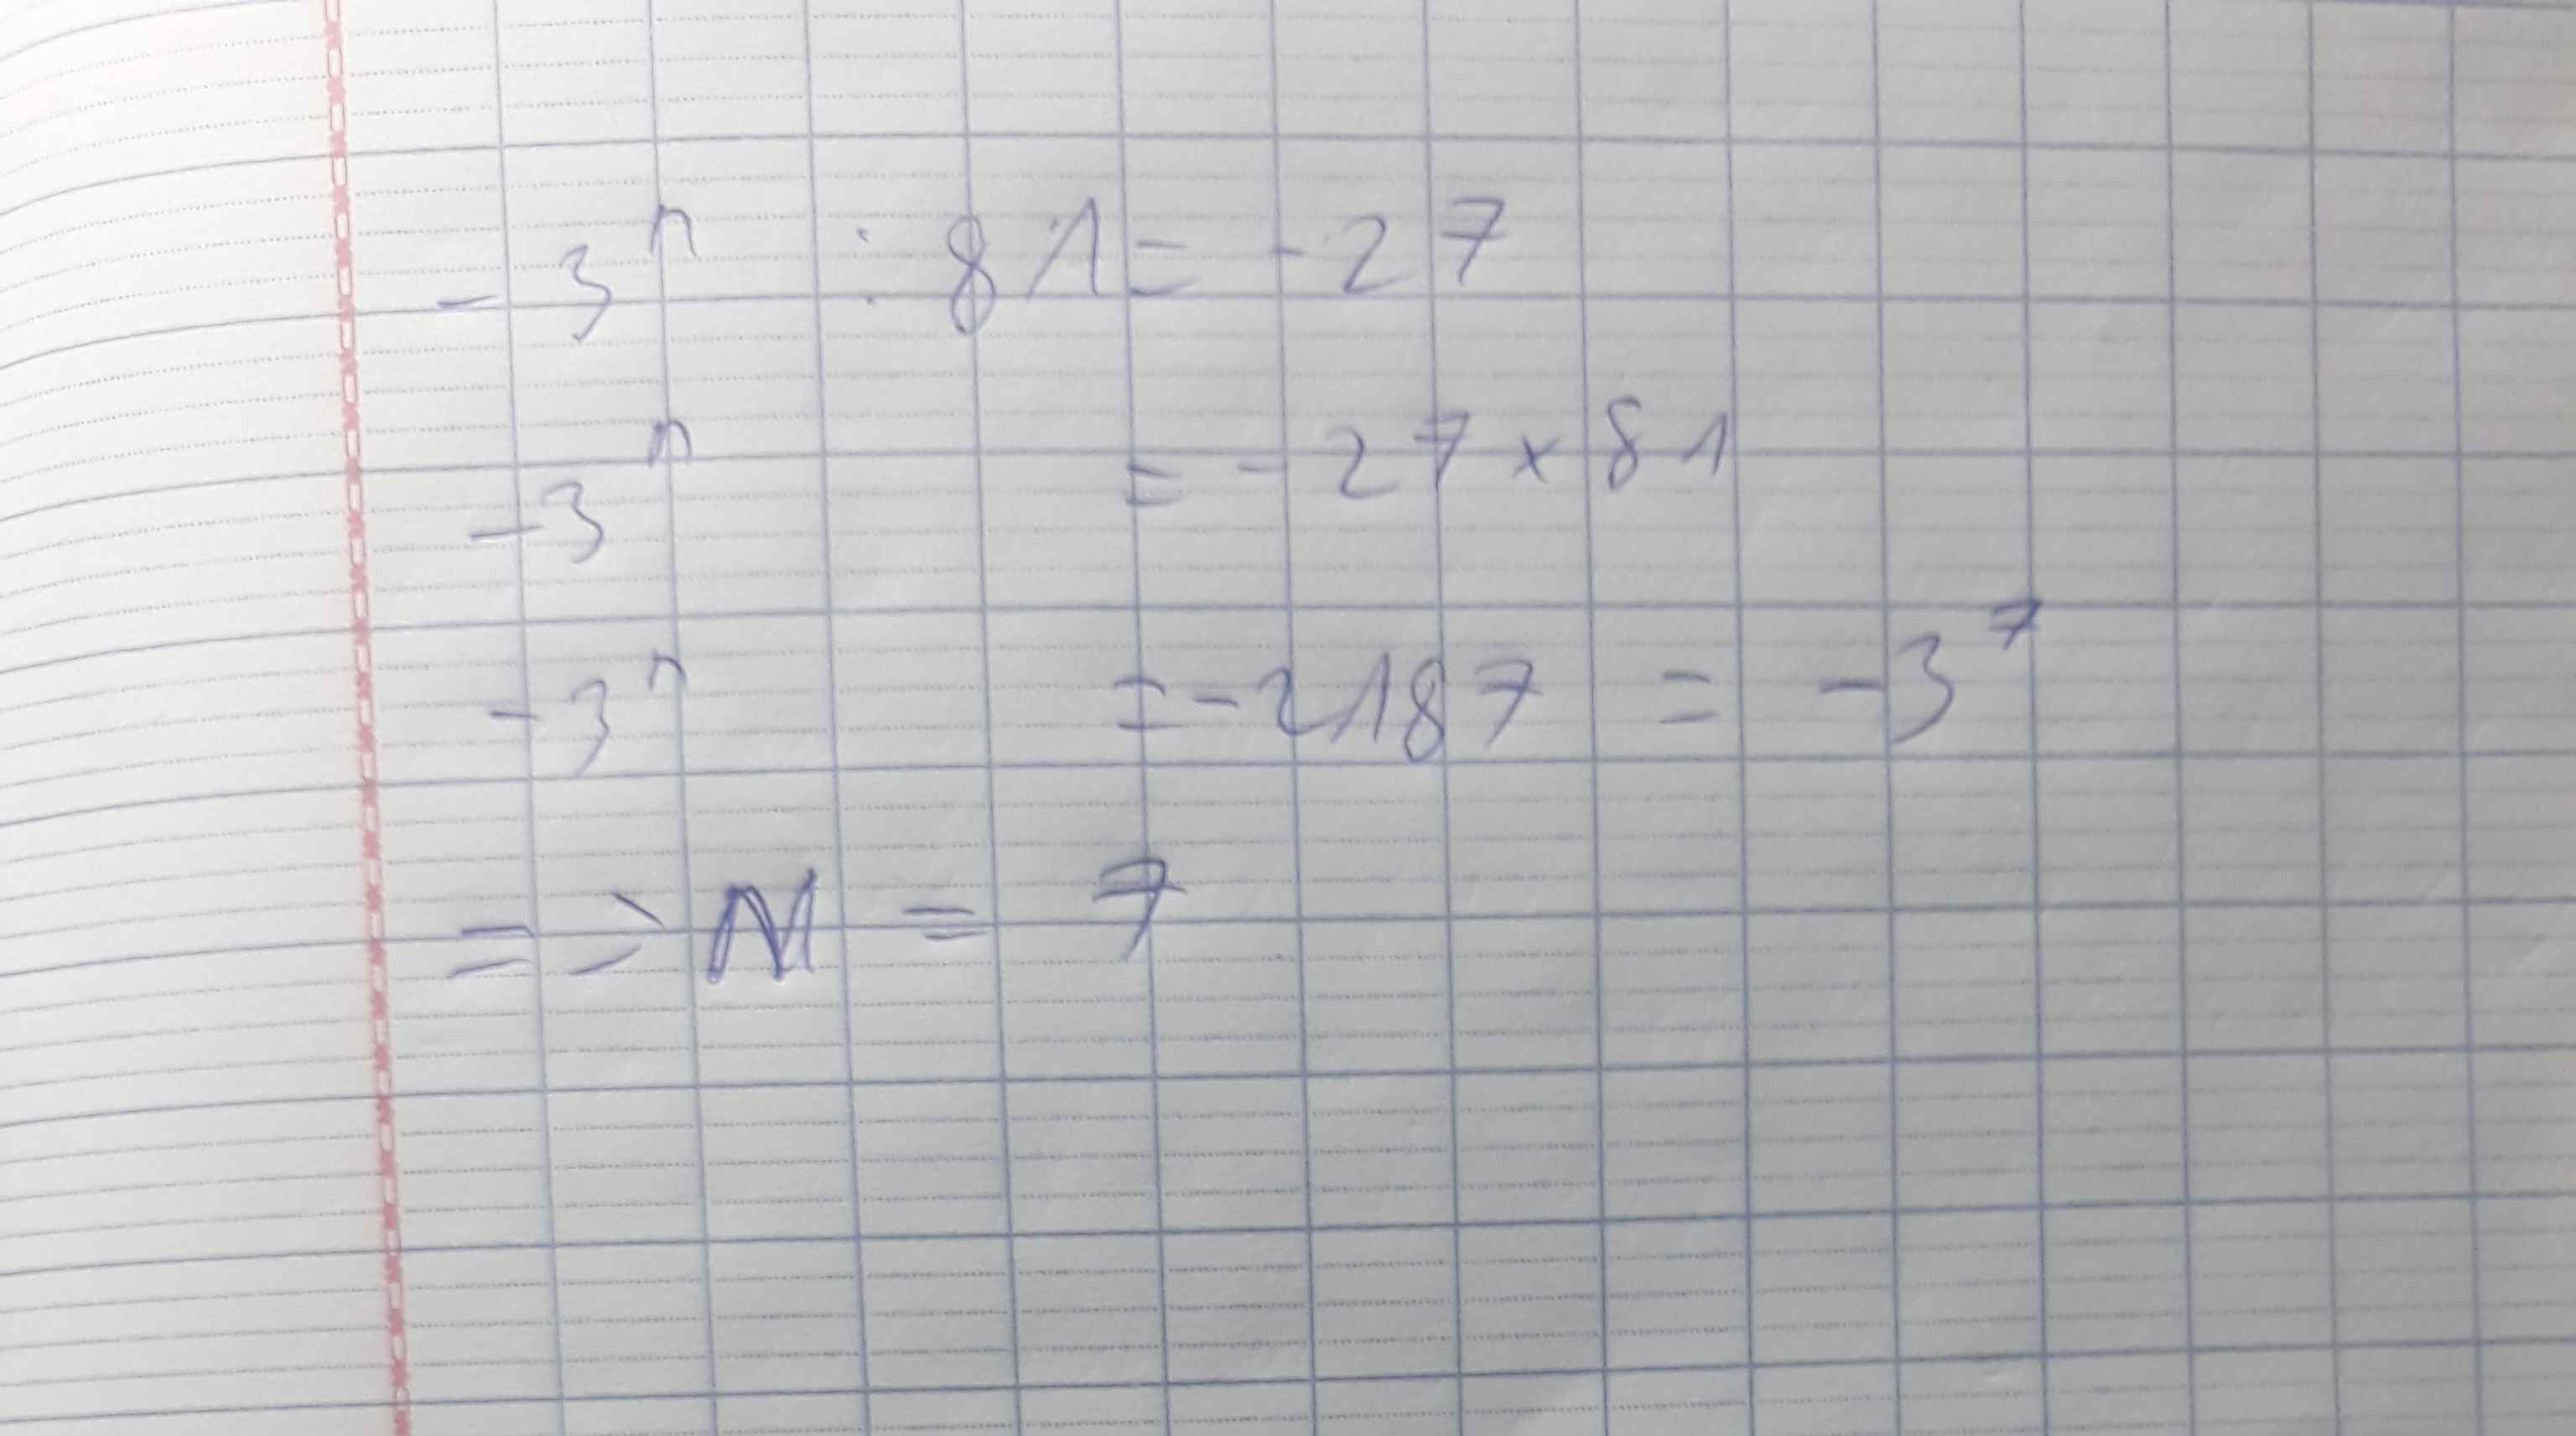 -3ⁿ : 81 = -27
-3ⁿ = -27 x 81
-3ⁿ = -2187 = -3⁷
=> N = 7